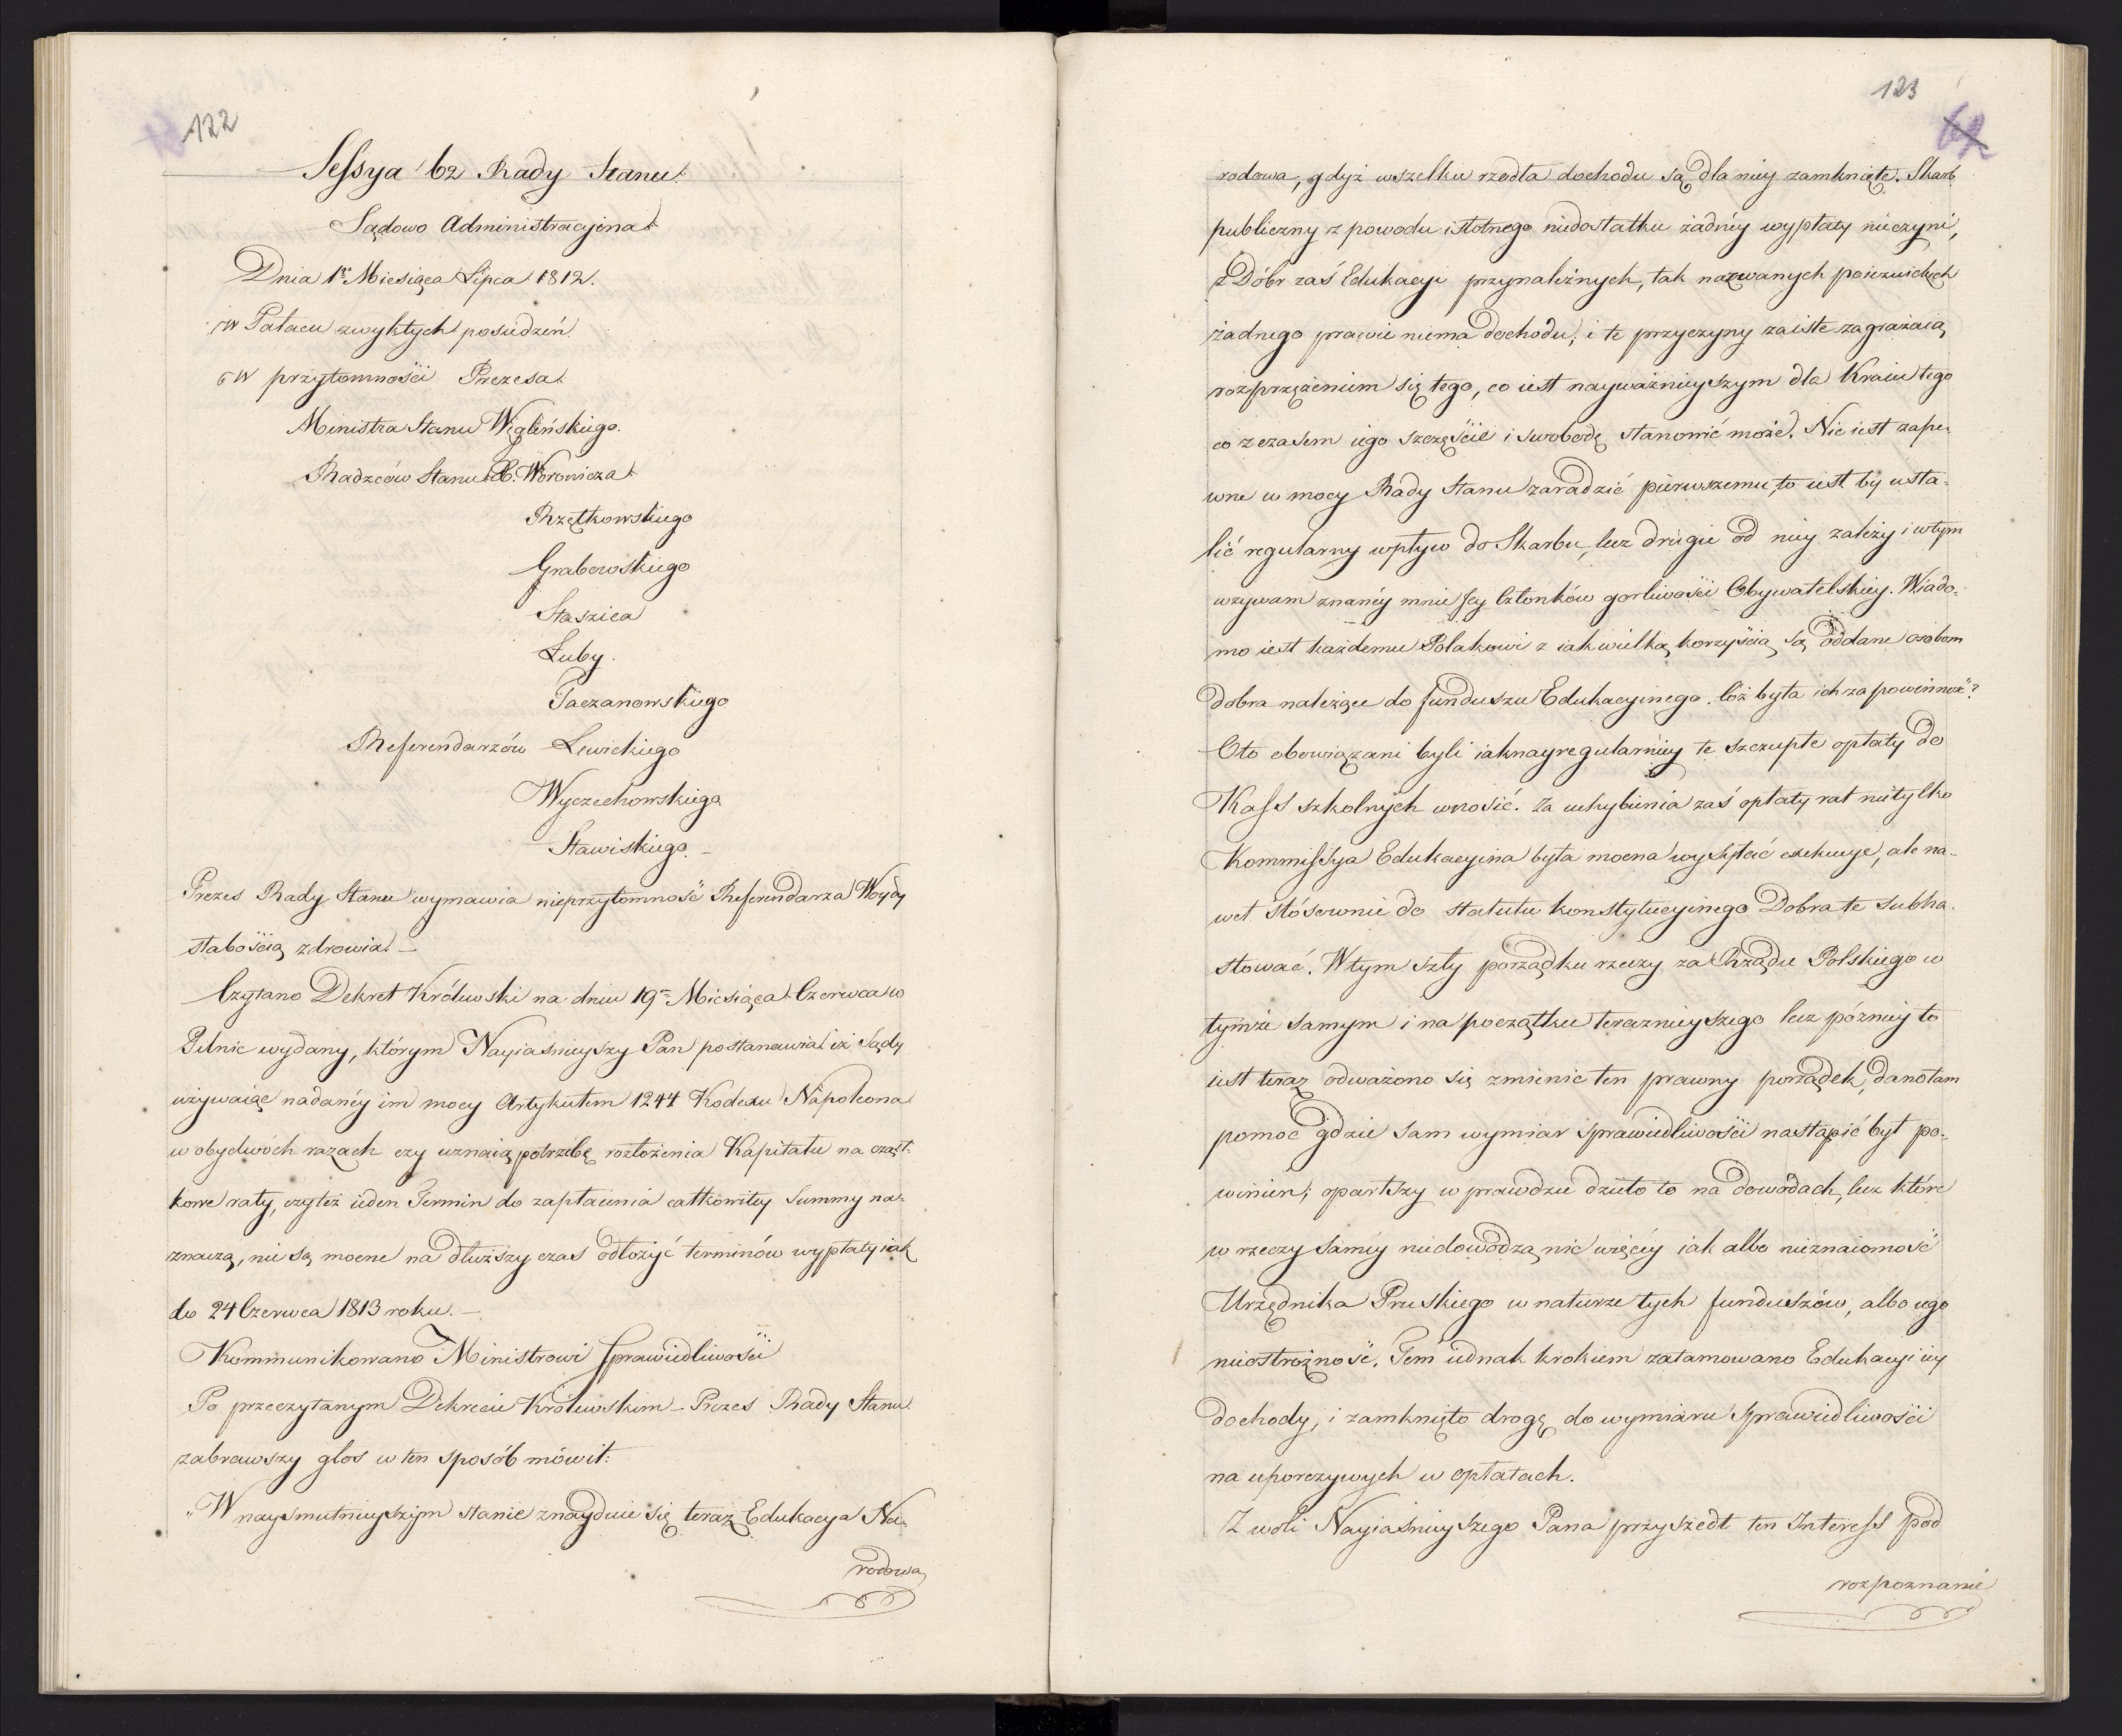 122
Sessya 62 Rady Stanu.
Sądowo Administracyjna
Dnia 1go Miesiąca Lipca 1812.
w Pałacu zwykłych posiedzeń
w przytomności Prezesa
Ministra Stanu Węgleńskiego.
Radzców Stanu X. Woronicza
Rzętkowskiego
Grabowskiego
Staszica
Łuby.
Taczanowskiego
Referendarzów Lewickiego
Wyczechowskiego
Stawiskiego. —
Prezes Rady Stanu wymawia nieprzytomność Referendarza Woydy
słabością zdrowia. —
Czytano Dekret Królewski na dniu 19m Miesiąca Czerwca w
Pilnic wydany, którym Nayiaśnieyszy Pan postanawia iż Sądy
używaiąc nadanéy im mocy Artykułem 1244 Kodexu Napoleona
w obydwóch razach czy uznaią potrzebę rozłożenia Kapitału na cząst-
kowe raty, czyteż ieden Termin do zapłacenia całkowitey Summy na-
znaczą, nie są mocne na dłuższy czas odłożyć terminów wypłaty iak
do 24 Czerwca 1813 roku. —
Kommunikowano Ministrowi Sprawiedliwości
Po przeczytanym Dekrecie Królewskim – Prezes Rady Stanu
zabrawszy głos w ten sposób mówił:
„W naysmutnieyszym stanie znayduie się teraz Edukacya Na-
rodowa
123
62
rodowa, gdyż wszelkie rzodła dochodu są dla niey zamknięte. Skarb
publiczny z powodu istotnego niedostatku żadnéy wypłaty nieczyni,
z Dóbr zaś Edukacyi przynależnych, tak nazwanych poiezuickich
żadnego prawie niema dochodu; i te przyczyny zaiste zagrażaią
rozprzężeniem się tego, co iest nayważnieyszym dla Kraiu tego
co z czasem iego szczęście i swobodę stanowić może. Nie iest zape-
wne w mocy Rady Stanu zaradzić pierwszemu, to iest by usta-
lić regularny wpływ do Skarbu, lecz drugie od niey zależy i wtym
wzywam znanéy mnie Jey Członków gorliwości Obywatelskiey. Wiado-
mo iest każdemu Polakowi z iak wielką korzyścią są oddane osobom
dobra należące do funduszu Edukacyinego. Cóż była ich za powinność?
Oto obowiązani byli iaknayregularniey te szczupłe opłaty do
Kass szkolnych wnosić. Za uchybienia zaś opłaty rat nietylko
Kommissya Edukacyina była mocna wysyłać exekucye, ale na-
wet stósownie do statutu konstytucyinego Dobra te subha-
stować. Wtym szły porządku rzeczy za Rządu Polskiego w
tymże samym i na początku teraznieyszego lecz pózniey to
iest teraz odważono się zmienic ten prawny porządek, dano tam
pomoc gdzie sam wymiar sprawiedliwości nastąpić był po-
winien; oparłszy w prawdzie dzieło to na dowodach, lecz które
w rzeczy saméy niedowodzą nic więcéy iak albo nieznaiomość
Urzędnika Pruskiego w naturze tych funduszów, albo iego
nieostrożność. Tem iednak krokiem zatamowano Edukacyi iey
dochody, i zamknięto drogę do wymiaru sprawiedliwości
na uporczywych w opłatach.
Z woli Nayiaśnieyszego Pana przyszedł ten Interess pod
rozpoznanie